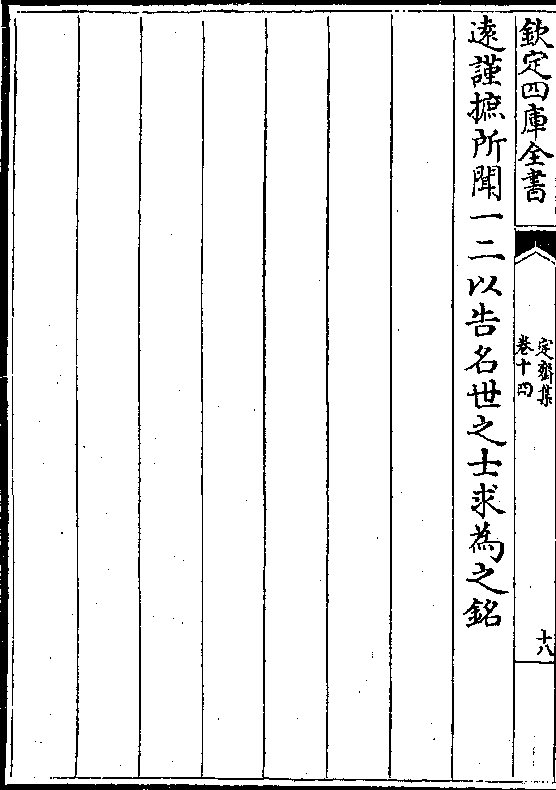 欽定四庫全書
定齋集
卷十四
十八
遠謹摭所聞一二以告名世之士求為之銘